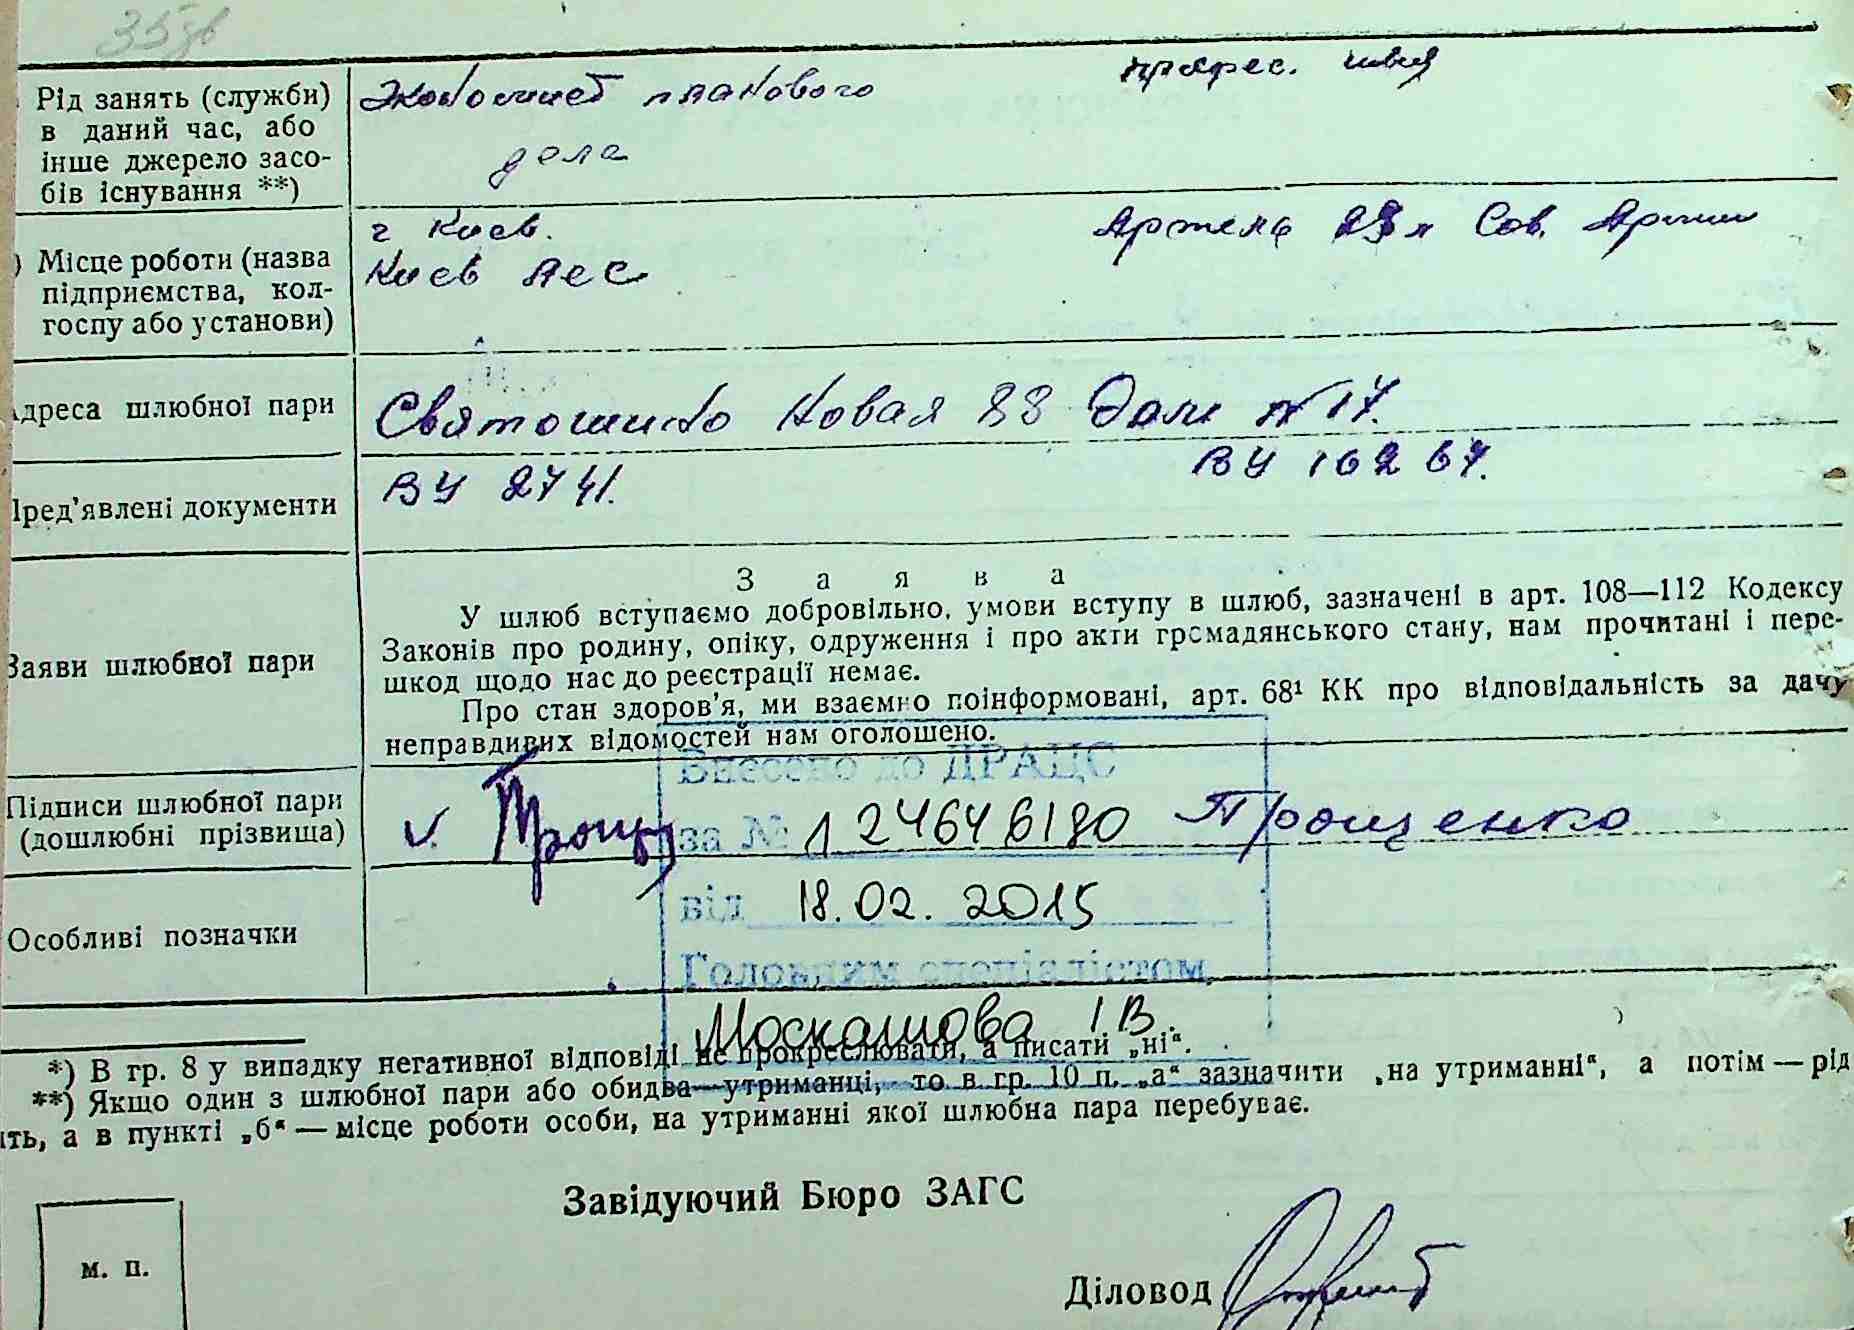 35зв
Рід занять (служби) в даний час, або інше джерело засобів існування **)
Экономист планового
дела
професс. швея
) Місце роботи (назва підприємства, колгоспу або установи)
г Киев.
Киев лес
Артель 23 л Сов. Армии
Адреса шлюбної пари
Святошино Новая 83 Дом № 17.
Пред’явлені документи
ВУ 2741.
ВУ 16267.
Заяви шлюбної пари
Заява
У шлюб вступаємо добровільно, умови вступу в шлюб, зазначені в арт. 108—112 Кодексу
Законів про родину, опіку, одруження і про акти громадянського стану, нам прочитані і пере-
шкод щодо нас до реєстрації немає.
Про стан здоров’я, ми взаємно поінформовані, арт. 68¹ КК про відповідальність за дачу
неправдивих відомостей нам оголошено.
Підписи шлюбної пари
(дошлюбні прізвища)
Трощ
Трощенко
Внесено до ДРАЦС
за № 124646180
від 18.02.2015
Головним спеціалістом
Москашова І.В.
Особливі позначки
*) В гр. 8 у випадку негативної відповіді не прокреслювати, а писати „ні“.
**) Якщо один з шлюбної пари або обидва—утриманці, то в гр. 10 п. „а“ зазначити „на утриманні“, а потім — рід
ть, а в пункті „б“ — місце роботи особи, на утриманні якої шлюбна пара перебуває.
Завідуючий Бюро ЗАГС
м. п.
Діловод